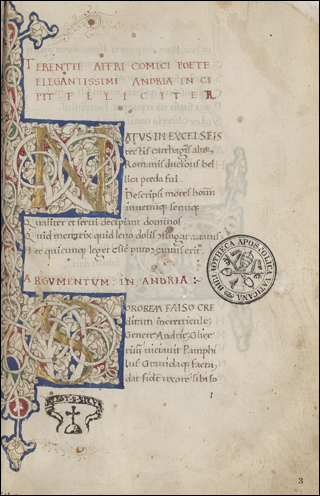 TERENTII AFFRI COMICI POETE
ELEGANTISSIMI ANDRIA INCI
PIT FELICITER
NATUS IN EXCELSIS
tectis carthaginis alte
Romanis ducibus bel
lica preda fui
Descripsi mores hominum
iuvenumque senumque
Qualiter et servi decipiant dominos
Quid meretrix quid leno dolis
Hec quicunque leget sic puto cautus erit
ARGUMENTUM IN ANDRIA :
SOROREM FALSO CRE
ditam meretricule
Genere Andrie Glice
rium vitiavit Pamphi
lus Gravidaque facta
dat fidem uxorem sibi fo
BIBLIOTHECA APOSTOLICA VATICANA
3